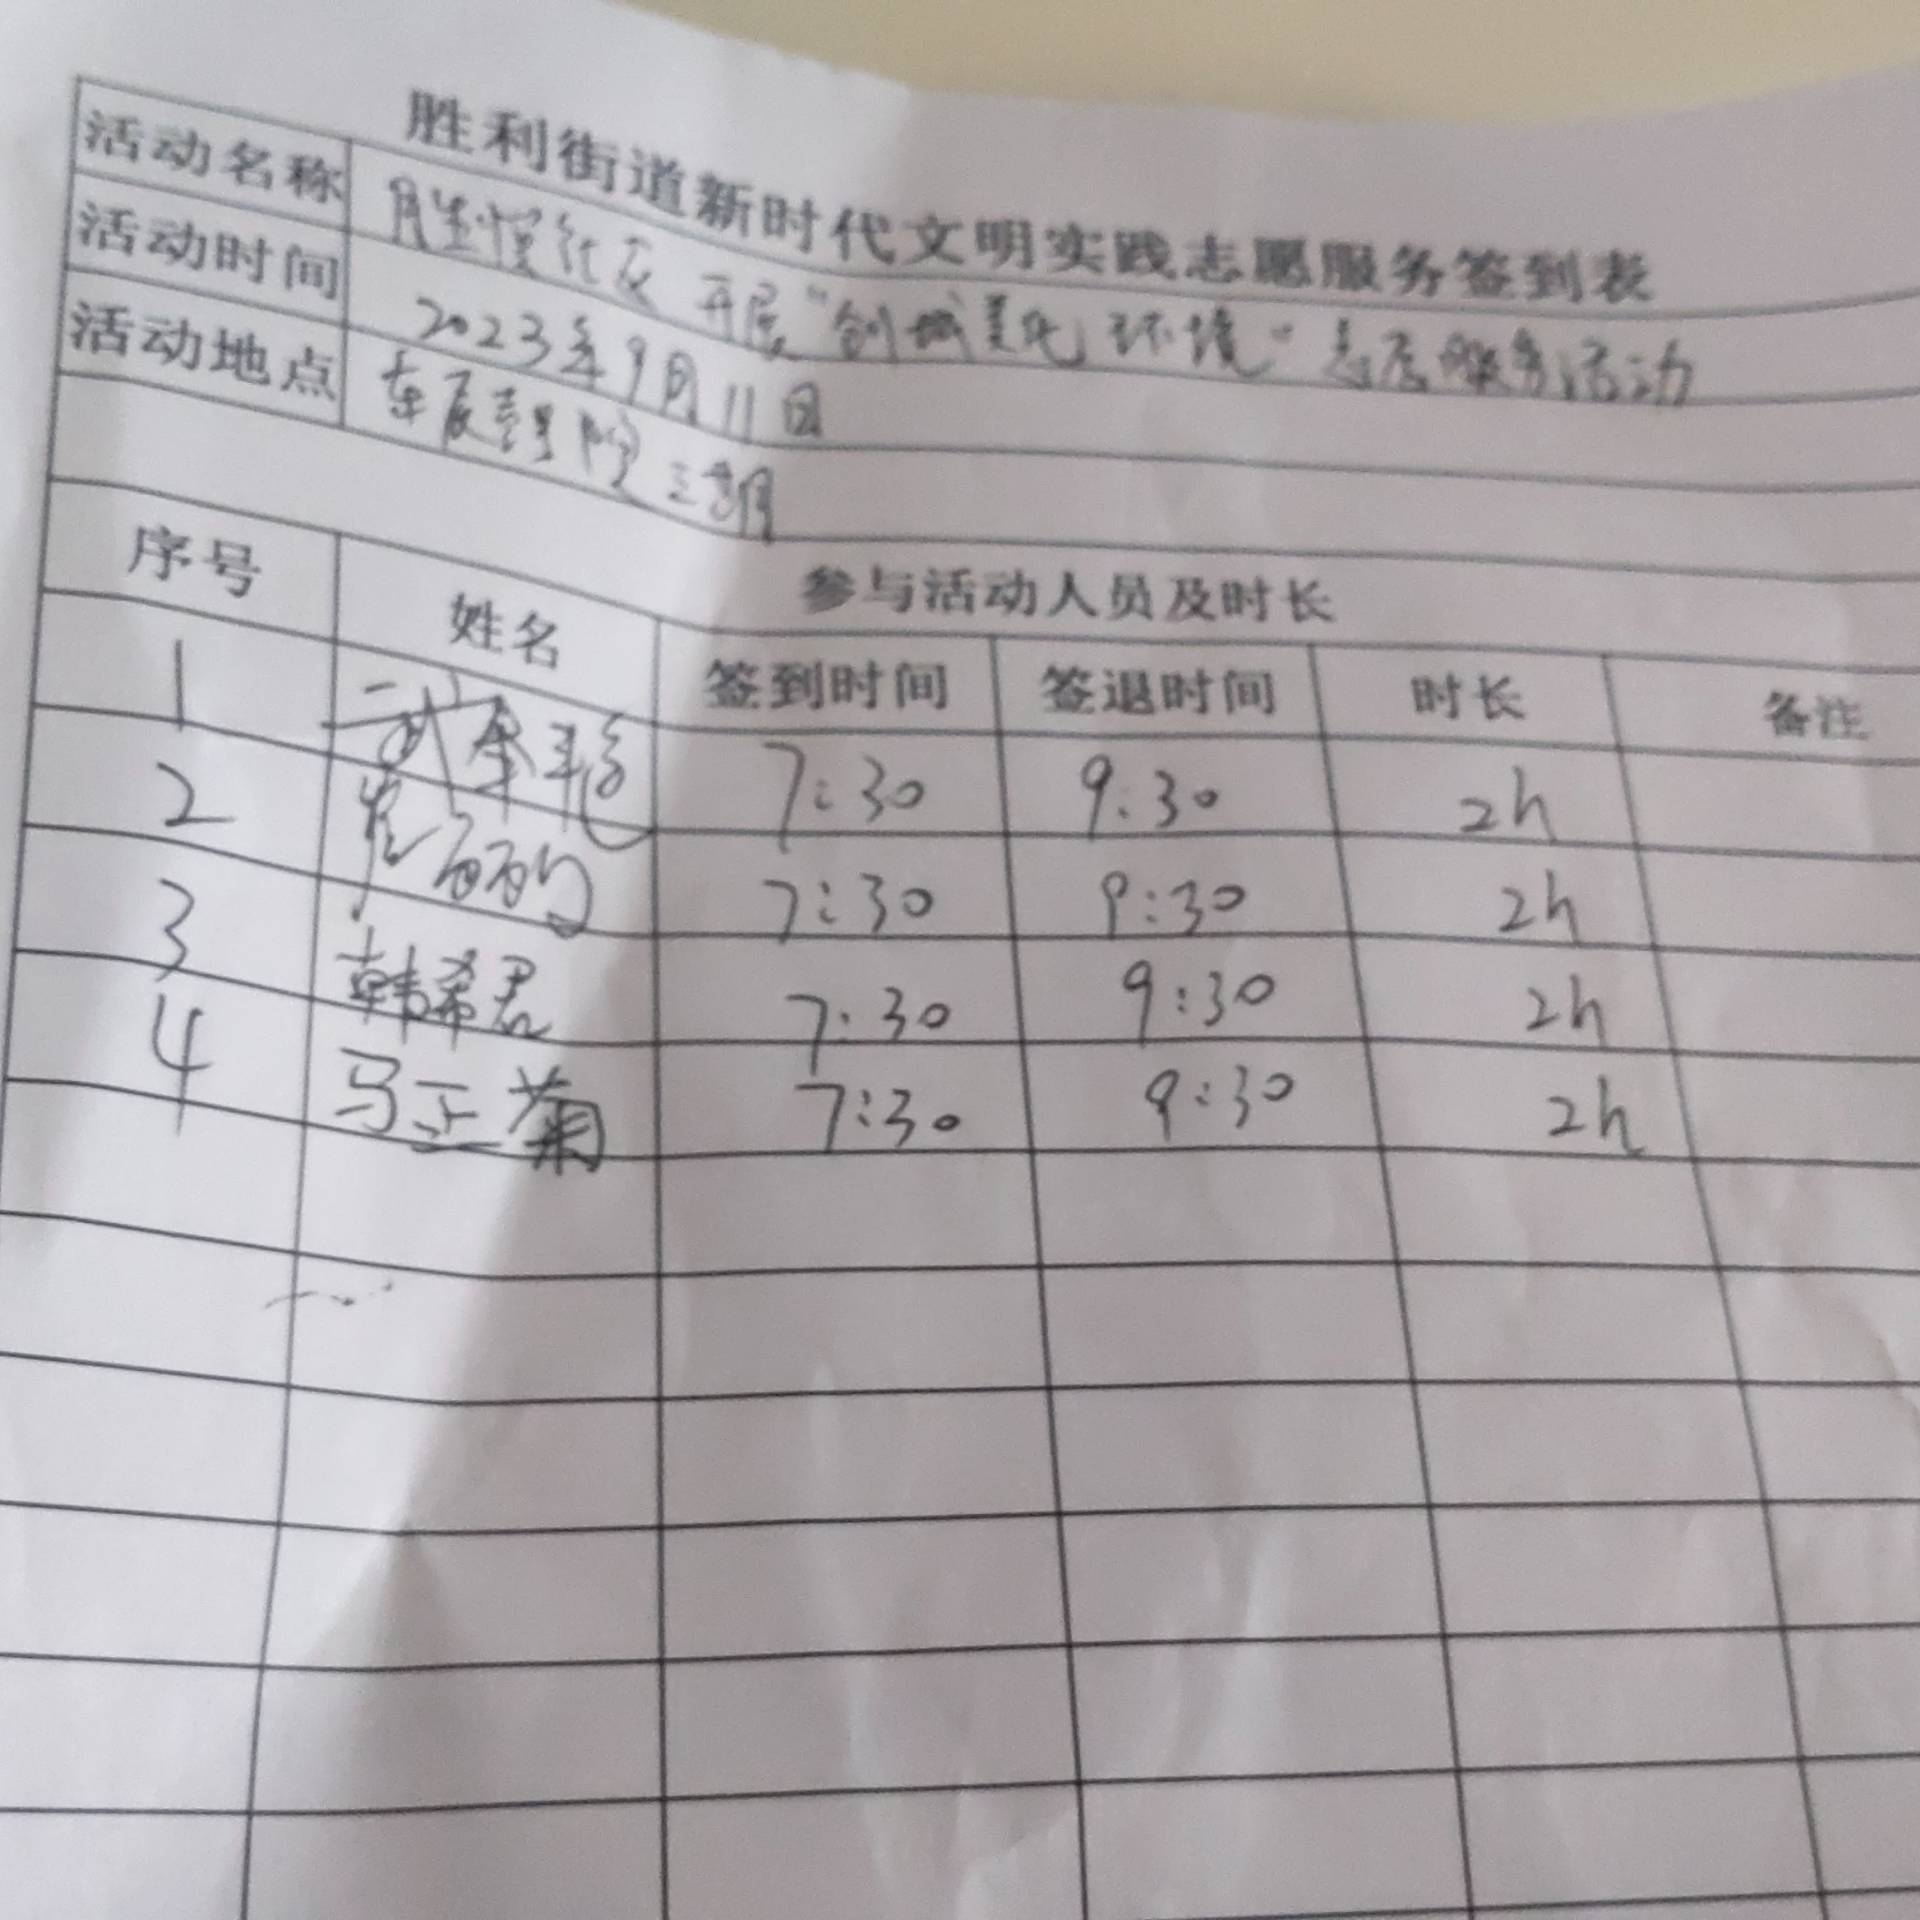 胜利街道新时代文明实践志愿服务签到表
活动名称 胜悦社区开展“创城美化环境”志愿服务活动
活动时间 2023年9月11日
活动地点 东辰壹号院三期
参与活动人员及时长
序号 姓名 签到时间 签退时间 时长 备注
1 7:30 9:30 2h
2 7:30 9:30 2h
3 韩希君 7:30 9:30 2h
4 马玉菊 7:30 9:30 2h